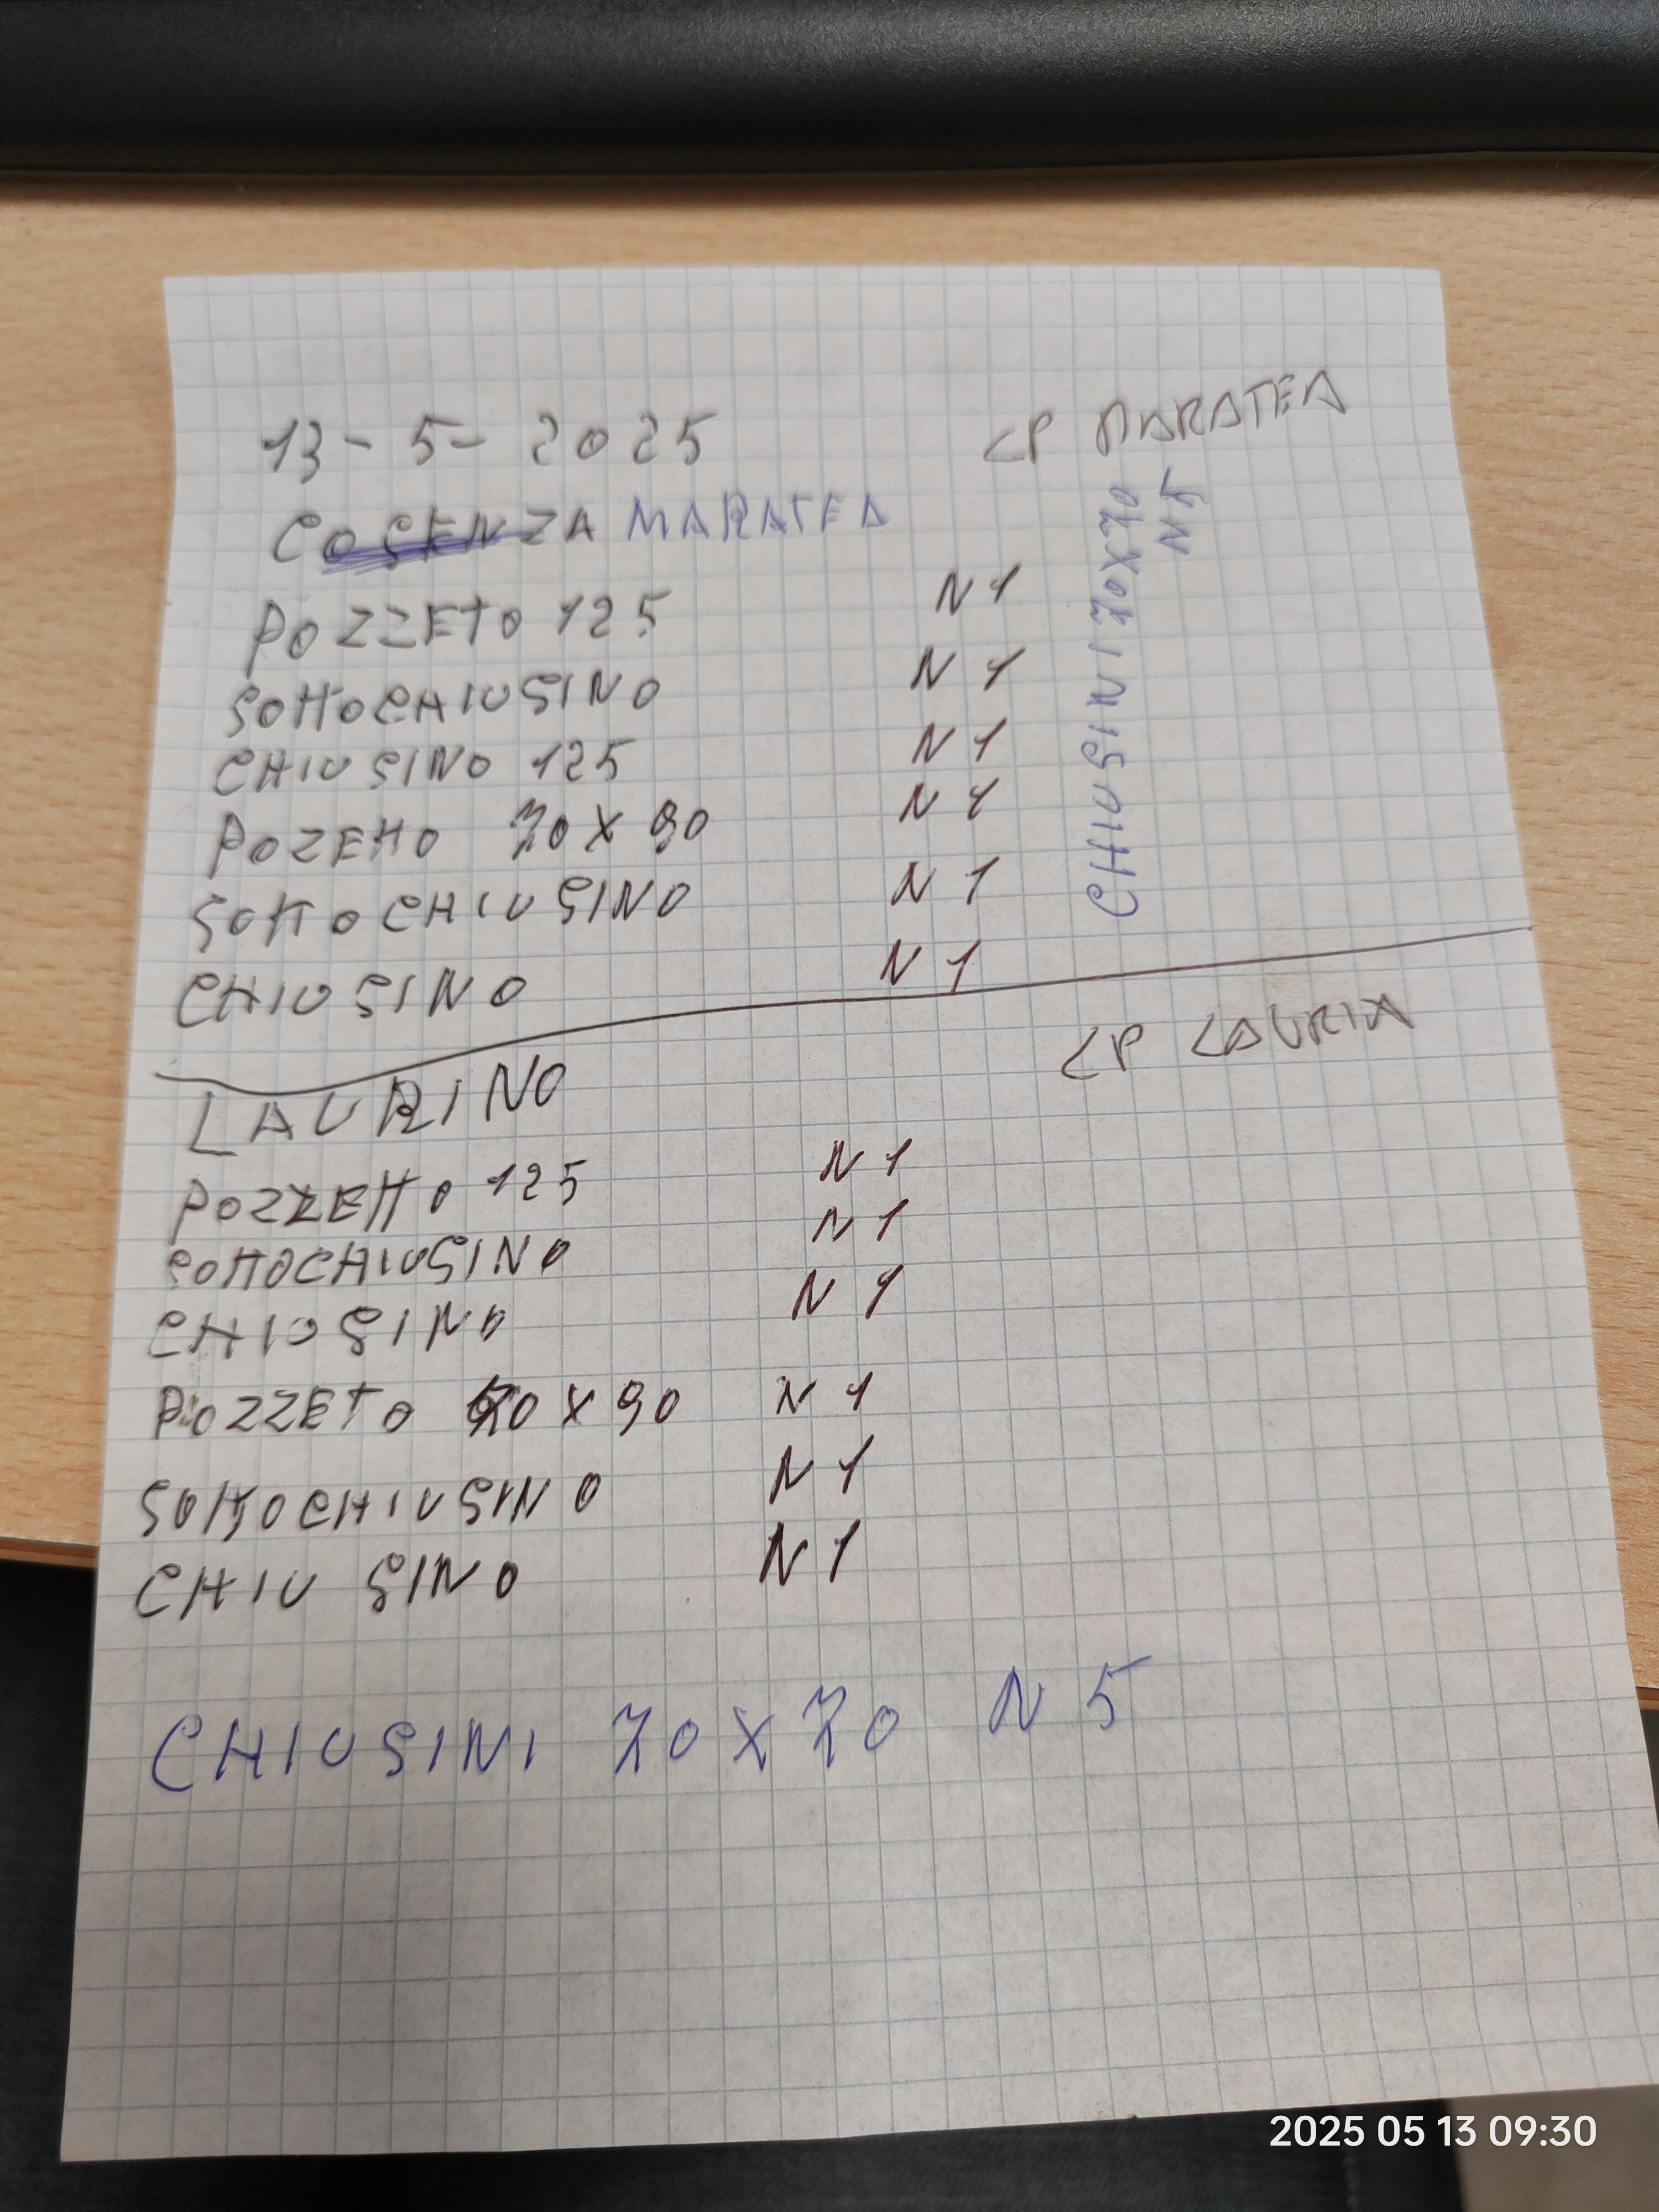 13-5-2025 CP MARATEA
COSENZA MARATEA
POZZETO 125 N 1
SOTTOCHIUSINO N 1
CHIUSINO 125 N 1
POZETTO 70 X 90 N 1
SOTTOCHIUSINO N 1
CHIUSINO N 1
CHIUSINI 70X70
N 5
LAURINO CP LAURIA
POZZETTO 125 N 1
SOTTOCHIUSINO N 1
CHIUSINO N 1
POZZETO 70 X 90 N 1
SOTTOCHIUSINO N 1
CHIUSINO N 1
CHIUSINI 70 X 70 N 5
2025 05 13 09:30